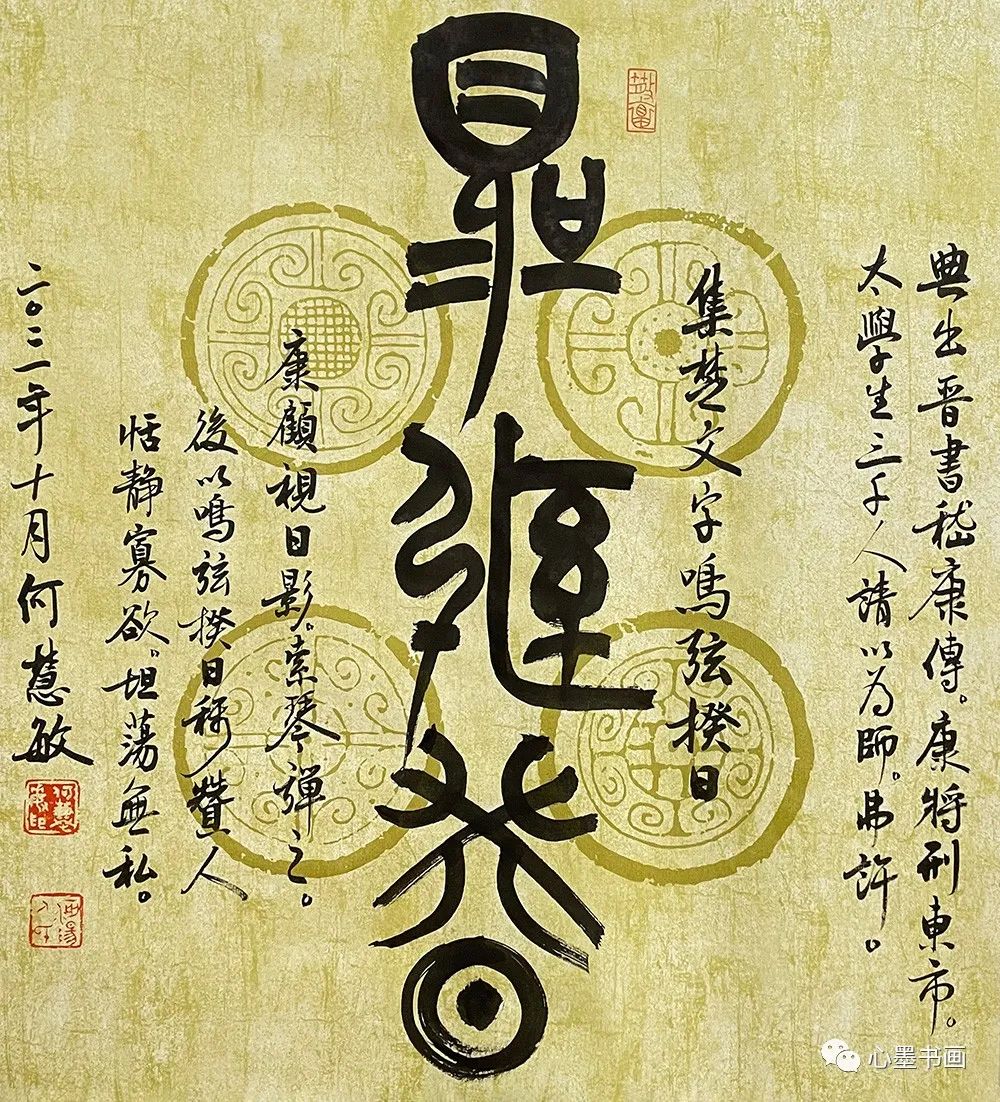 典出晋書嵇康傳。康將刑東市。
太學生三千人請以为師。弗許。
集楚文字鳴弦揆日
康顧視日影。索琴彈之。
後以鳴弦揆日稱贊人
恬静寡欲。坦荡無私。
二〇二一年十月何慧敏
心墨书画